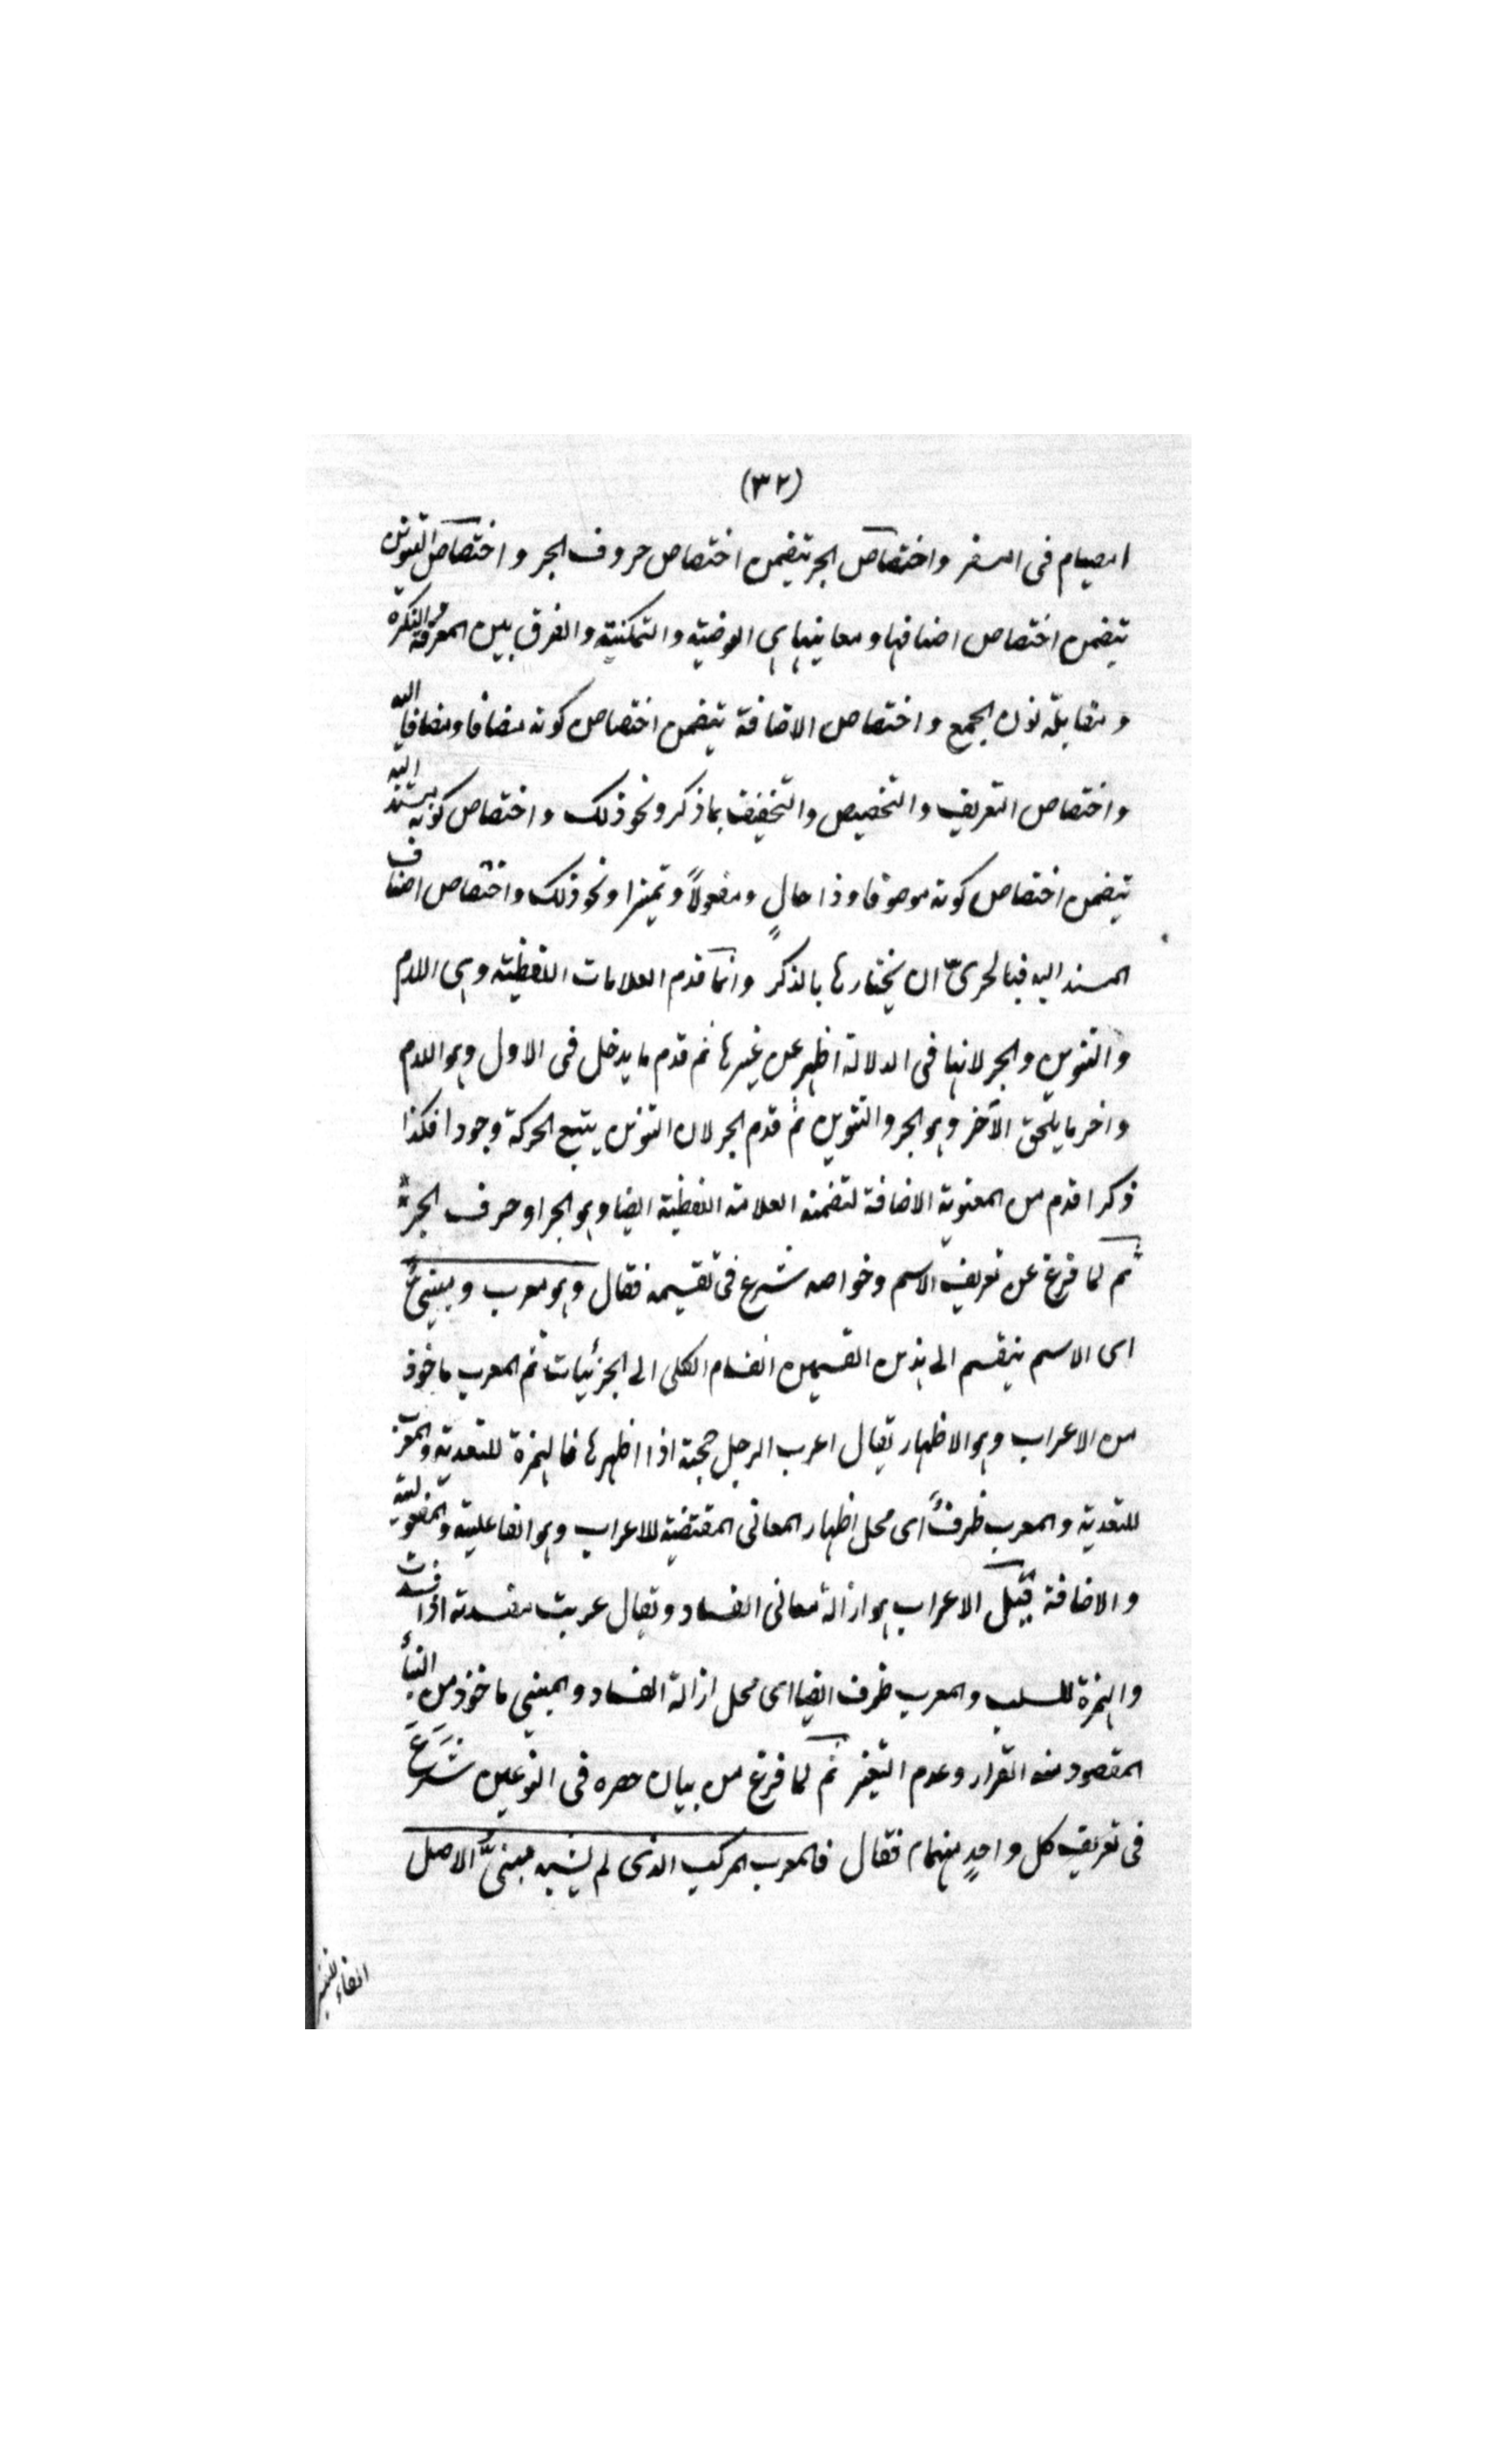 (٣٢)
الصيام فى السفر واختصاص الجر يتضمن اختصاص حروف الجر واختصاص التنوين
يتضمن اختصاص اصنافها ومعانيها هى العوضية والتمكنية والفرق بين المعرفة والنكرة
ومقابلة نون الجمع واختصاص الاضافة يتضمن اختصاص كونه مضافا ومضافا اليه
واختصاص التعريف والتخصيص والتخفيف بما ذكر ونحو ذلك واختصاص كونه مسندا اليه
يتضمن اختصاص كونه موصوفا وذا حالٍ ومفعولاً وتميزا ونحو ذلك واختصاص اضاف
المسند اليه فبالحرىّ ان يختارها بالذكر وانما قدم العلامات اللفظية وهى اللام
والتنوين والجر لانها فى الدلالة اظهر عن غيرها ثم قدم ما يدخل فى الاول وهو اللام
واخر ما يلحق الآخر وهو الجر والتنوين ثم قدم الجر لان التنوين يتبع الحركة وجودا فكذا
ذكرا قدم من المعنوية الاضافة لتضمنه العلامة اللفظية ايضا وهو الجر او حرف الجر
ثم لما فرغ عن تعريف الاسم وخواصه شرع فى تقسيمه فقال وهو معرب ومبنىٌّ
اى الاسم ينقسم الى هذين القسمين انقسام الكلى الى الجزئيات ثم المعرب ماخوذ
من الاعراب وهو الاظهار يقال اعرب الرجل حجته اذا اظهرها فالهمزة للتعدية والمعرب
للتعدية والمعرب ظرفٌ اى محل اظهار المعانى المقتضية للاعراب وهو الفاعلية والمفعولية
والاضافة قيل الاعراب هو ازالة معانى الفساد ويقال عربت مفسدته اذا فسدت
والهمزة للسلب والمعرب ظرف ايضا اى محل ازالة الفساد والمبنى ماخوذ من البناء
المقصود منه القرار وعدم التغير ثم لما فرغ من بيان حصره فى النوعين شَرَعَ
فى تعريف كل واحدٍ منهما فقال فالمعرب المركب الذى لم يشبه مبنىَّ الاصل
الفاء للتفسير